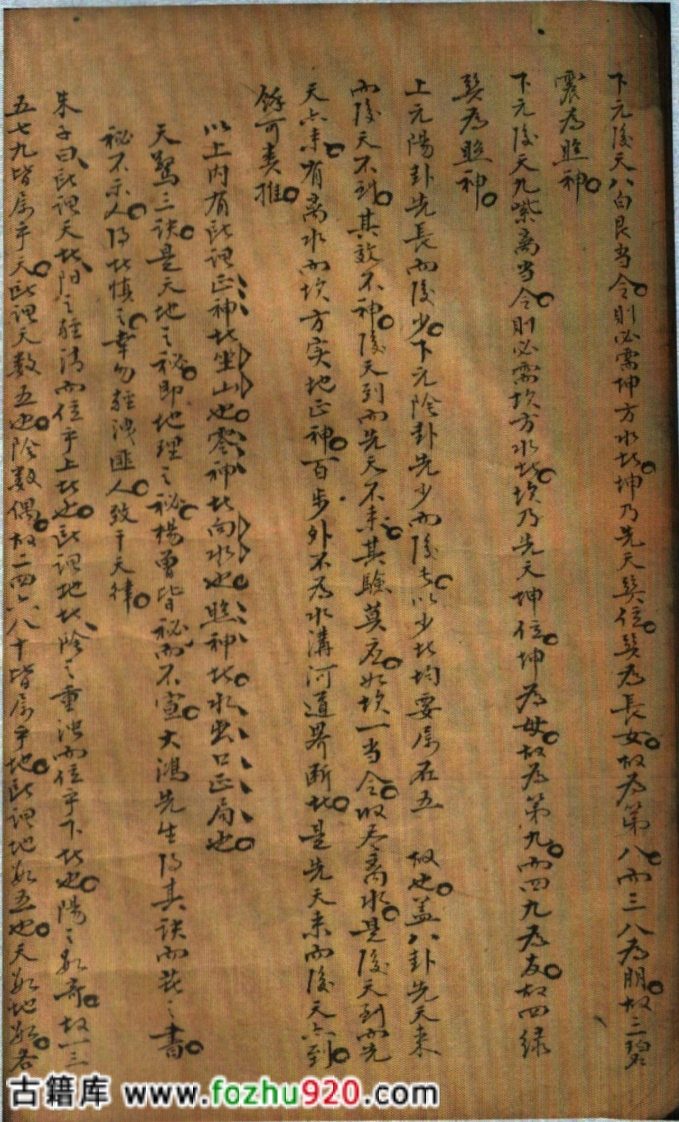 下元後天八白艮当令則必需坤方水者坤乃先天巽位巽為長女故為第八而三八為朋故三碧
震為照神
下元後天九紫离当令則必需坎方水者坎乃先天坤位坤為母故為第九而四九為友故四綠
巽為照神
上元陽卦先長而後少下元陰卦先少而後長以少者均要属在五 故也盖八卦先天来
而後天不到其效不神後天到而先天不来其驗莫应如坎一当令收尽离水是後天到而先
天亦来有离水而坎方实地正神百步外不為水溝河道界断者是先天来而後天亦到
餘可类推
以上内有所謂正神者坐山也零神者向水也照神者水出口正局也
天驚三訣是天地之秘即地理之秘楊曾皆秘而不宣大鴻先生得其訣而花之書
秘不示人得者慎之幸勿輕洩匪人致干天律
朱子曰所謂天者陽之輕清而位乎上者也所謂地者陰之重浊而位乎下者也陽之数奇故一三
五七九皆属乎天所謂天数五也陰数偶故二四六八十皆属乎地所謂地数五也天数地数各
古籍库 www.fozhu920.com